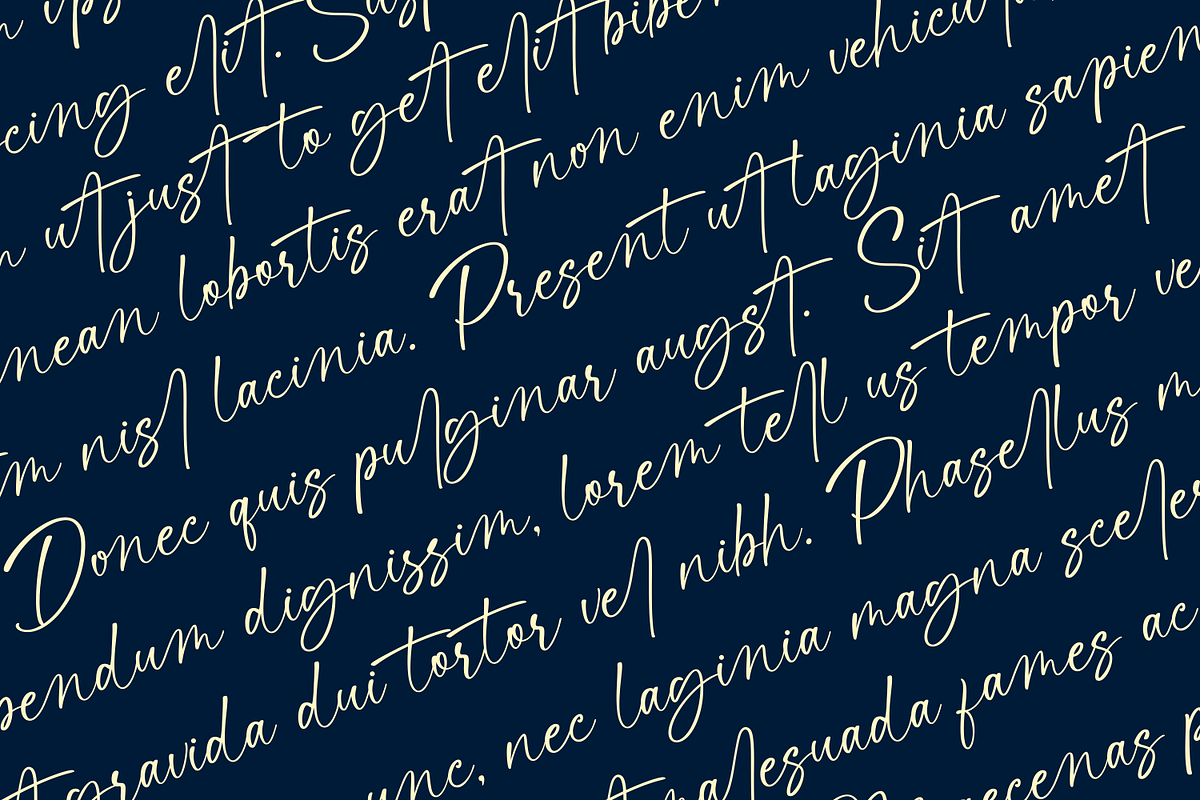 cing elit.
ut just to get elit
nean lobortis erat non enim
nisl lacinia. Present ut laginia sapien
Donec quis pulginar augst. Sit amet
pendum dignissim, lorem tell us tempor ve
gravida dui tortor vel nibh. Phasellus m
unc, nec laginia magna sceler
malesuada fames ac
ecenas p